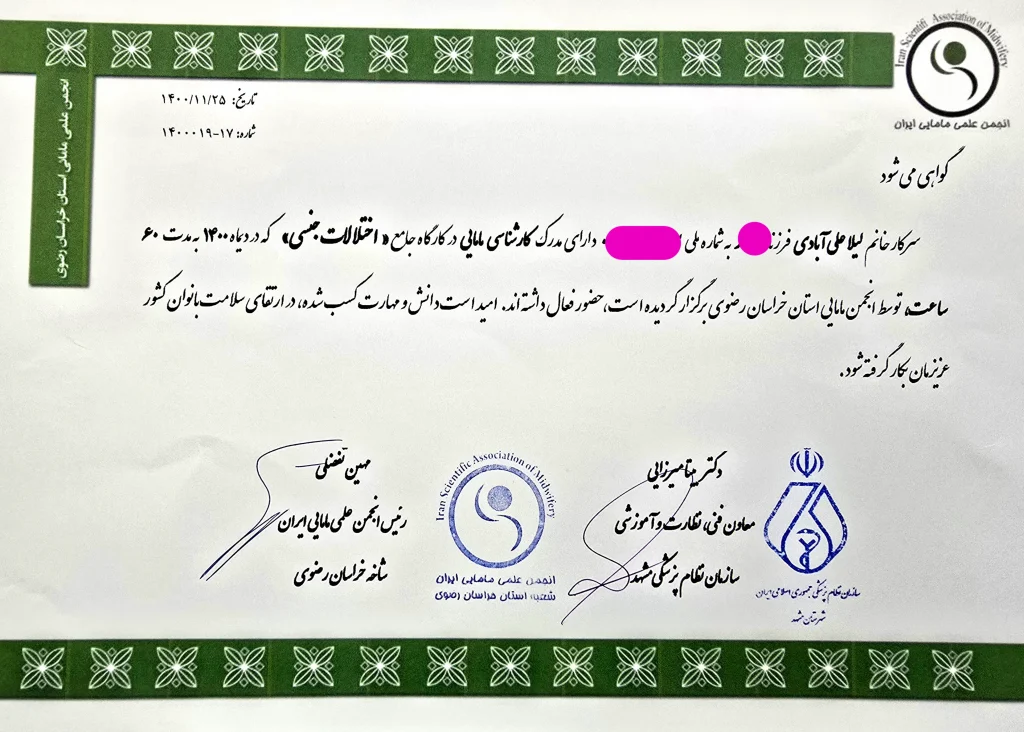 Iran Scientifi Association of Midwifery
انجمن علمی مامایی ایران
انجمن علمی مامائی استان خراسان رضوی
تاریخ: ۱۴۰۰/۱۱/۲۵
شماره: ۱۷-۱۴۰۰۰۱۹
گواهی می شود
سرکار خانم لیلا علی آبادی فرزند به شماره ملی دارای مدرک کارشناسی مامایی در کارگاه جامع « اختلالات جنسی» که در دیماه ۱۴۰۰ به مدت ۶۰
ساعت، توسط انجمن مامایی استان خراسان رضوی برگزار گردیده است، حضور فعال داشته اند. امید است دانش و مهارت کسب شده، در ارتقای سلامت بانوان کشور
عزیزمان بکار گرفته شود.
دکتر مینا میرزایی
معاون فنی، نظارت و آموزشی
سازمان نظام پزشکی مشهد
سازمان نظام پزشکی جمهوری اسلامی ایران
شهرستان مشهد
Iran Scientific Association of Midwifery
انجمن علمی مامایی ایران
شعبه استان خراسان رضوی
مهین تفضلی
رئیس انجمن علمی مامایی ایران
شاخه خراسان رضوی